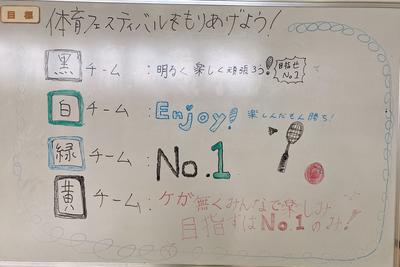 目標
体育フェスティバルをもりあげよう!
黒チーム:明るく楽しく頑張ろう!目指せNo.1
白チーム:Enjoy!楽しんだもん勝ち!
緑チーム:No.1
黄チーム:ケガ無くみんなで楽しみ
目指すはNo.1のみ!